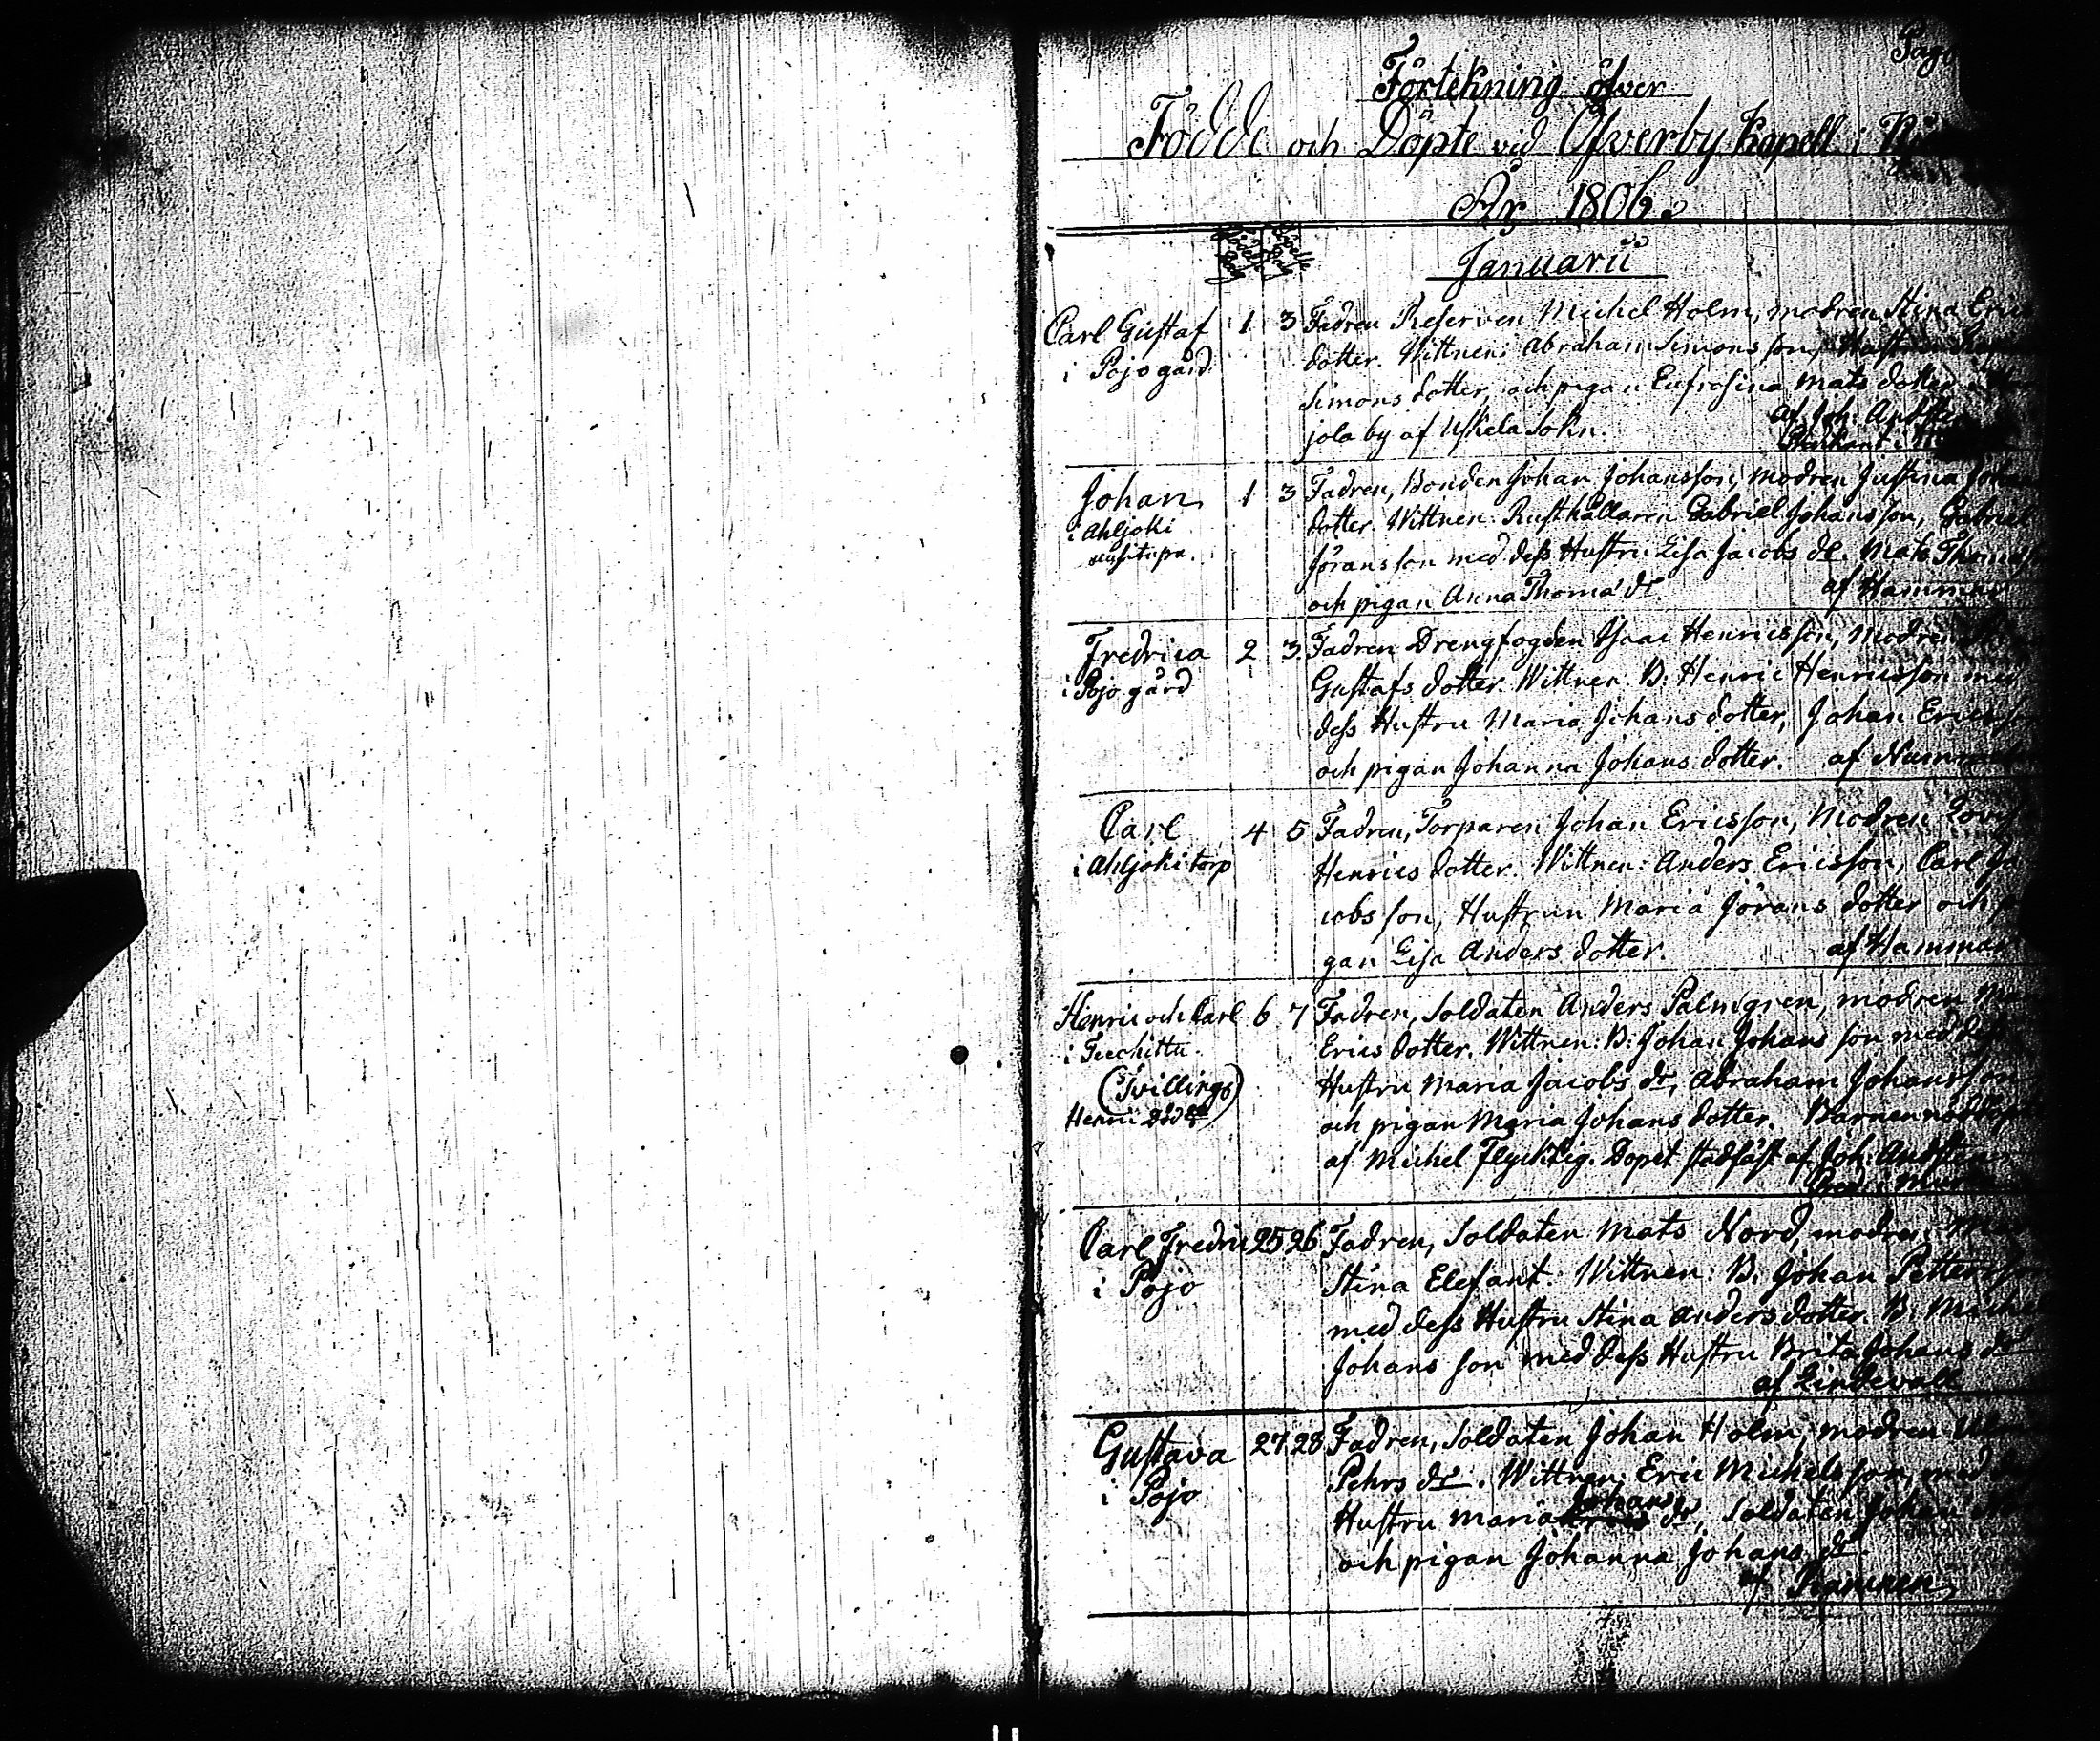 Förtekning öfver
Födde och Döpte vid Ofverby Kapell i
År 1806.
Januarii
Carl Gustaf 1 3 Fadren Reserven Michel Holm, modren Stina Erics
i Pojo gård dotter. Wittnen: Abraham Simons son, Hustrun
Simons dotter, och pigan Eufrosina Mats dotter
jola by af Uskela Sokn. af Joh:
Johan 1 3 Fadren, Bonden Johan Johansson, modren Justina Johans
i Ahljoki dotter. Wittnen: Rusthållaren Gabriel Johansson, Gabriel
Jöransson med dess Hustru Lisa Jacobs dr. Mats
och pigan Anna Thomæ dr. af
Fredrica 2 3 Fadren Drengfogden Isaac Henricsson, Modren
i Pojo gård Gustafs dotter. Wittnen. B: Henric Henricsson med
dess Hustru Maria Johans dotter, Johan Ericsson
och pigan Johanna Johans dotter. af
Carl 4 5 Fadren, Torparen Johan Ericsson, Modren Lovisa
i Ahljoki torp Henrics dotter. Wittnen: Anders Ericsson, Carl Ja
cobs son, Hustrun Maria Jörans dotter och pi
gan Lisa Anders dotter. af
Henric och Carl 6 7 Fadren, Soldaten Anders Palmgren, modren
i Erics dotter. Wittnen: B: Johan Johans son med dess
(Tvillingr) Hustru Maria Jacobs dr, Abraham Johansson
Henric död och pigan Maria Johans dotter. Barnen
af Michel Flyckt Dopet stadfäst af Joh:
Carl Fredric 25 26 Fadren, Soldaten Mats Nord, modren
i Pojo Stina Elefant. Wittnen: B. Johan Pettersson
med dess Hustru Stina Anders dotter. B. Michel
Johans son med dess Hustru Brita Johans dr
af
Gustava 27 28 Fadren, Soldaten Johan Holm, modren
i Pojo Pehrs dr. Wittnen: Eric Michels son, med
Johans
Hustru Maria dr, Soldaten Johan
och pigan Johanna Johans dr
af